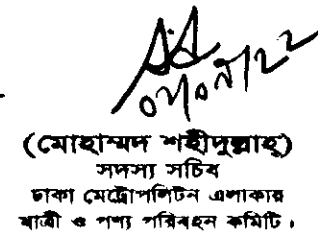 ০৭/০৭/২২
(মোহাম্মদ শহীদুল্লাহ্)
সদস্য সচিব
ঢাকা মেট্রোপলিটন এলাকার
যাত্রী ও পণ্য পরিবহন কমিটি।